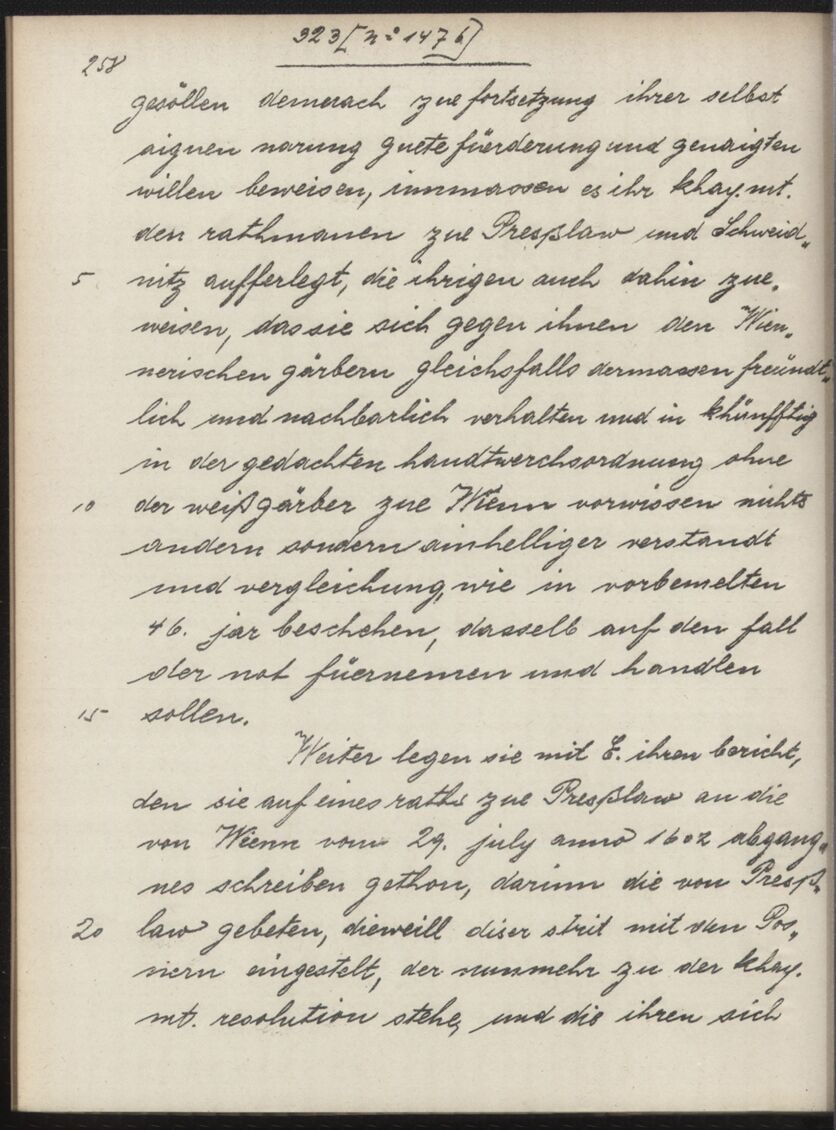 323 [nº 1476]
258
gesöllen demnach zue fortsetzung ihrer selbst
aignen narung guete füerderung und genaigten
willen beweisen, innmassen es ihr khay. mt.
den rathmanen zue Presßlaw und Schweid„
5 nitz aufferlegt, die ihrigen auch dahin zue„
weisen, das sie sich gegen ihnen den Wien„
nerischen gärbern gleichsfalls dermassen freündt„
lich und nachbarlich verhalten und in khünfftig
in der gedachten handtwerchsordnung ohne
10 der weißgärber zue Wienn vorwissen nichts
andern sondern ainhelliger verstandt
und vergleichung, wie in vorbemelten
46. jar beschehen, dasselb auf den fall
der not füernemen und handlen
15 sollen.
Weiter legen sie mit E. ihren bericht,
den sie auf eines raths zue Presßlaw an die
von Wienn vom 29. july anno 1602 abgang„
nes schreiben gethon, darinn die von Presß„
20 law gebeten, dieweill diser strit mit den Pos„
nern eingestelt, der nunmehr zu der khay.
mt. resolution stehe, und die ihren sich